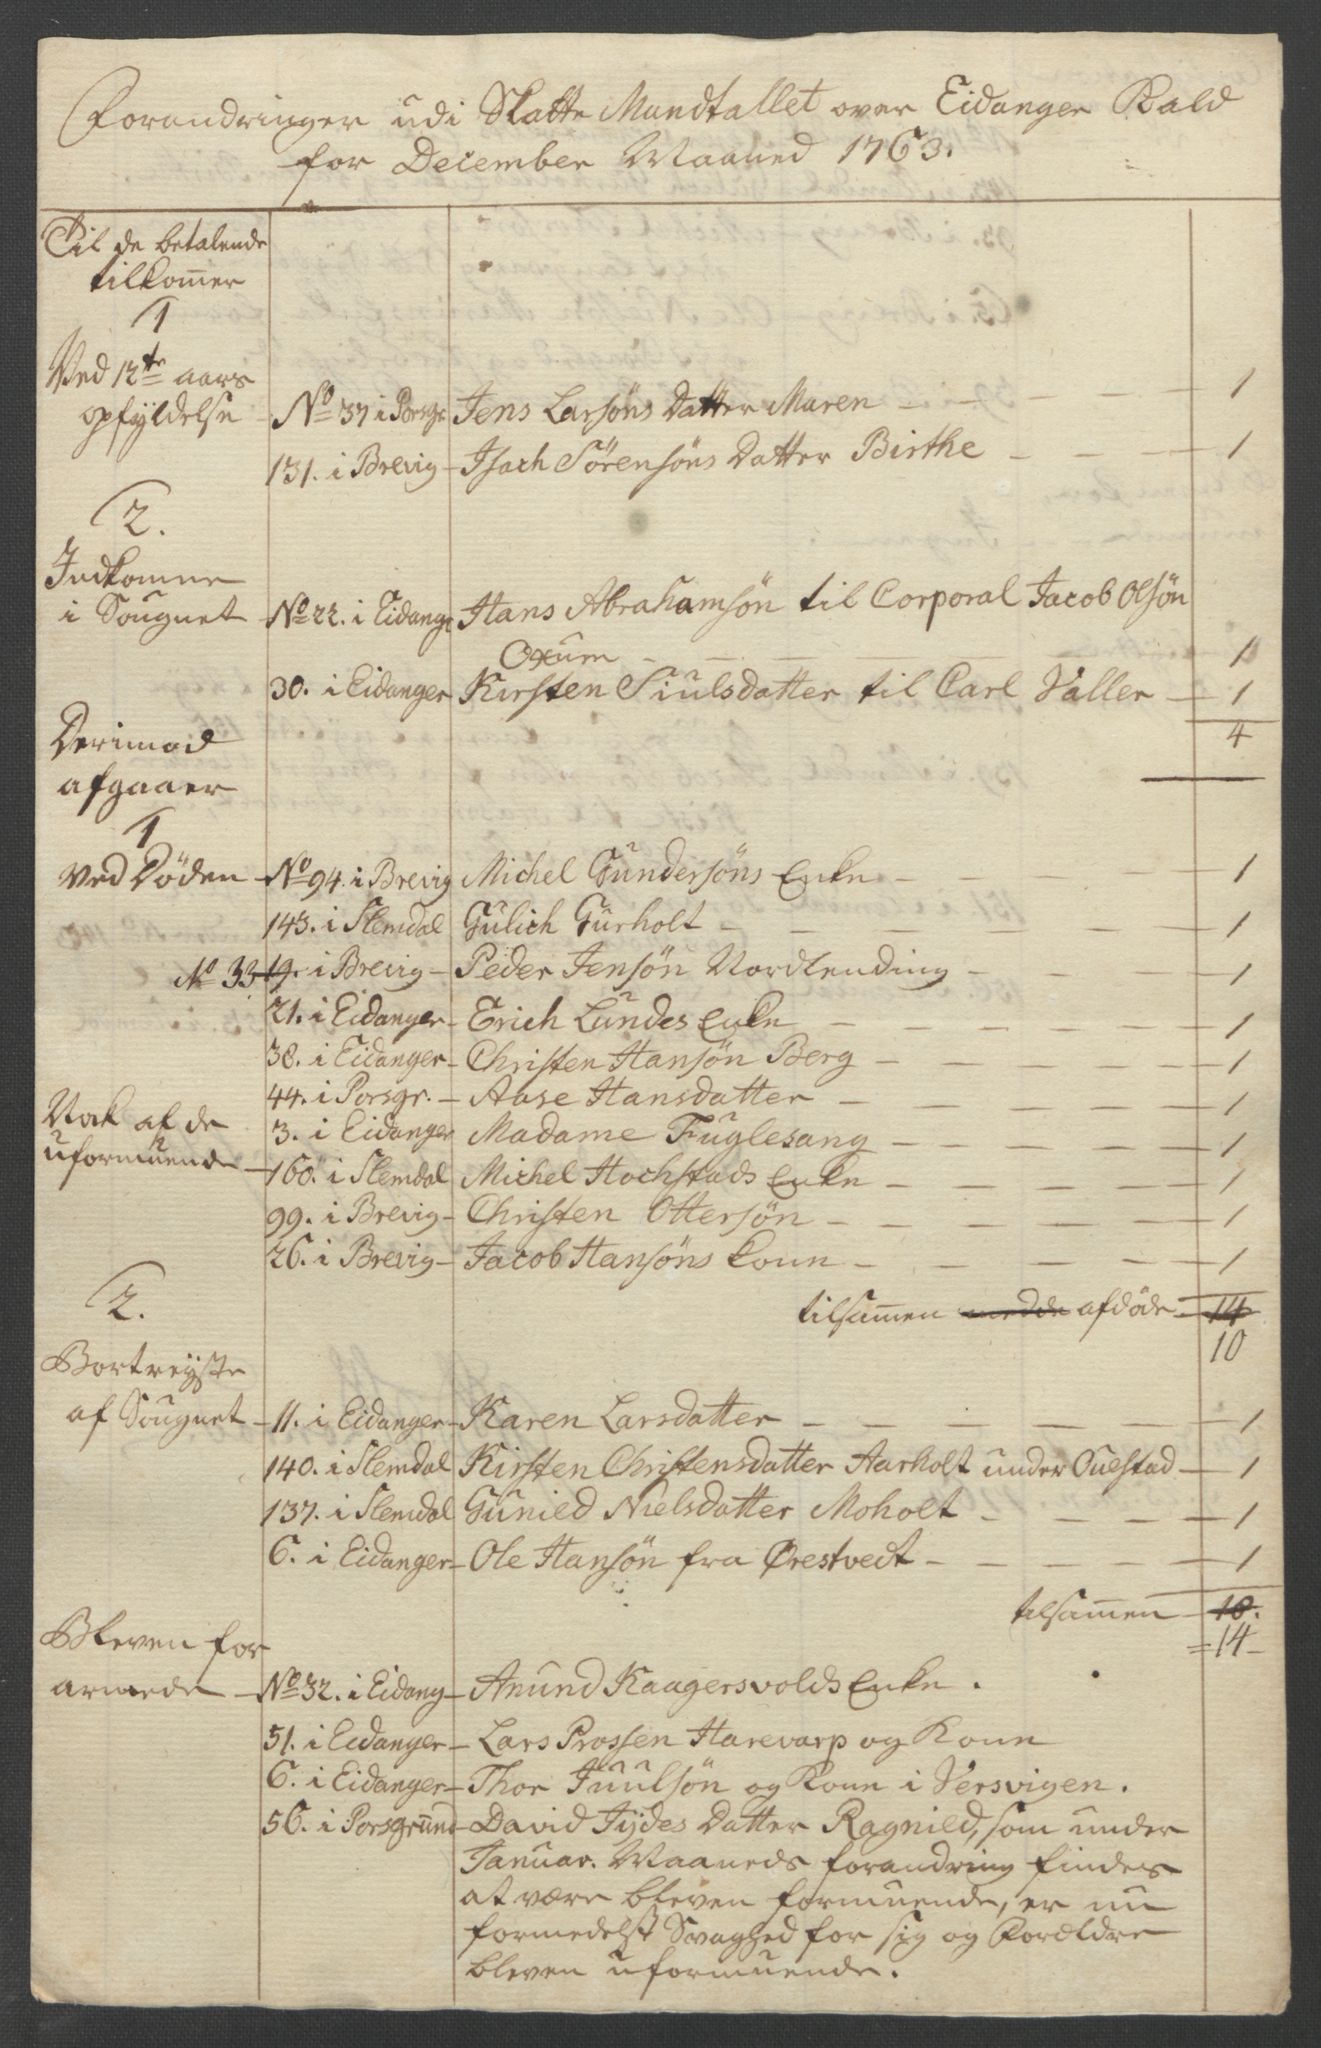 Forandringer udi Skatte Mandtallet over Eidanger Kald
for December Maaned 1763.
Til de betalende
tilkom̅er
1
Ved 12te aars
opfyldelse - No 37 i Porsgr. Jens Larsöns Datter Maren - - - - 1
131. i Brevig - Isach Sörensöns Datter Birthe - - - - 1
2.
Indkomne
i Sougnet - No 22. i Eidangr Hans Abrahamsön til Corporal Jacob Olsön
Oxum - - - - 1
30. i Eidanger Kirsten Siulsdatter til Carl Valler - 1
4
Derimod
afgaaer
1
ved Döden - No 94. i Brevig Michel Gundersöns Enke - - - 1
143. i Slemdal Gulich Gurholt - - - - 1
No 33 19. i Brevig - Peder Jensön Nordlending - - - 1
21. i Eidanger - Erich Lundes Enke - - - - 1
38. i Eidanger - Christen Hansön Berg - - - - 1
44. i Porsgr. - Aase Hansdatter - - - - 1
Nok af de
uformuende - 3. i Eidanger Madame Fuglesang - - - - 1
160. i Slemdal Michel Hochstads Enke - - - - 1
99. i Brevig - Christen Ottersön - - - - 1
26. i Brevig - Jacob Hansöns Kone - - - - 1
tilsam̅en afdöde - 14
10
2.
Bortreyste
af Sougnet - 11. i Eidanger - Karen Larsdatter - - - - 1
140. i Slemdal Kirsten Christensdatter Aarholt under Ouestad - 1
137. i Slemdal Gunild Nielsdatter Moholt - - - 1
6. i Eidanger - Ole Hansön fra Ørestvedt - - - - 1
tilsam̅en - 10.
= 14 -
Bleven for
armede - No 32. i Eidang - Anund Kaagersvolds Enke.
51. i Eidanger - Lars Prossen Harevarp og Kone
6. i Eidanger - Thor Juulsön og Kone i Versvigen.
56. i Porsgrund - David Jydes Datter Ragnild, som under
Januar. Maaneds forandring findes
at være bleven formuende, er nu
formedelst Svaghed for sig og Forældre
bleven uformuende.